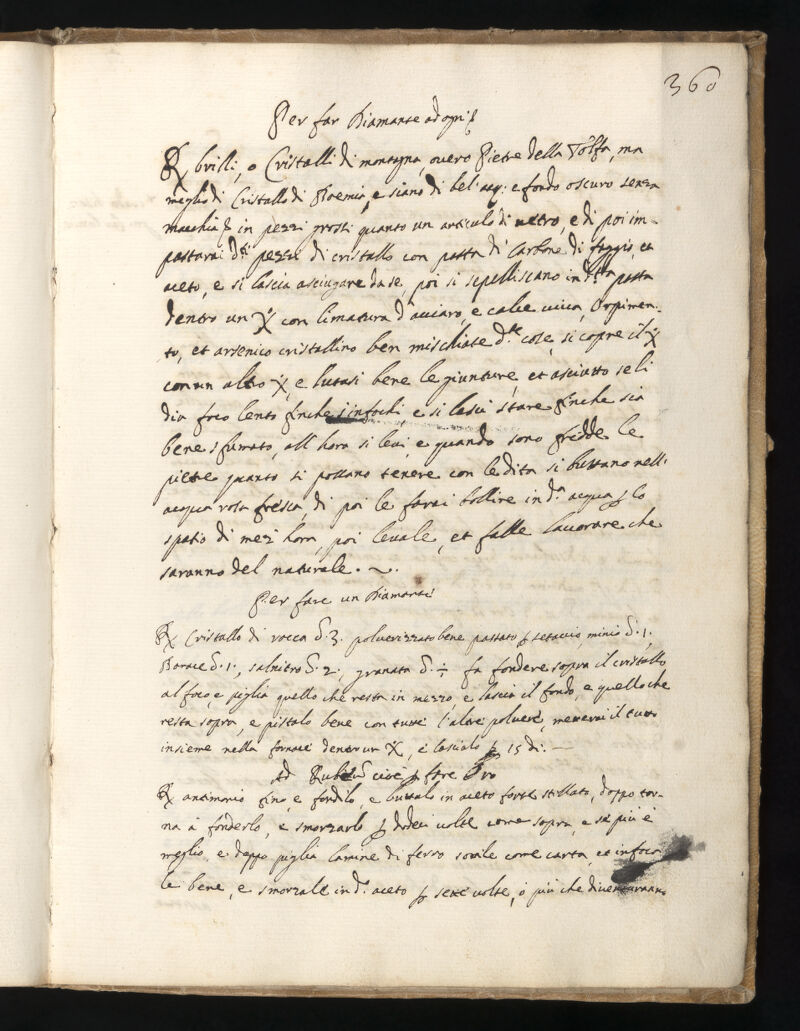 360
Per far Diamante ad ogni
℞ brilli, o Cristalli di montagna, overo Pietre della Tolfa, ma
meglio di Cristallo di Boemia, e siano di bel' acq: e fondo oscuro senza
macchia in pezzi grossi quanto un articulo di e di poi im-
pastarai d.ti pezzi di cristallo con pasta di Carbone di faggio, et
aceto, e si lascia asciugare da se, poi si sepelliscano in d.ta pasta
dentro un con limatura d'acciaro, e calce viva, Orpimen-
to, et arsenico cristallino ben mischiate d.te cose, si copre il
con un altro e lutasi bene le giunture, et asciutto se li
dia foco lento finche s'infochi, e si lasci stare finche sia
bene sfumato, all'hora si levi, e quando sono fredde le
pietre quanto si possano tenere con le dita si buttano nell'
acqua rosa fresca, di poi le farai bollire in d.a acqua p lo
spatio di mez' hora, poi levale, et falle lavorare che
saranno del naturale. ~.
Per fare un Diamante
℞ Cristallo di rocca 3. polverizzato bene passato p setaccio, minio 1,
Borace 1., salnitro 2., granata fa fondere sopra il cristallo
al foco, e piglia quello che resta in mezzo, e lascia il fondo, e quello che
resta sopra, e pistalo bene con tutte l'altre polveri, metterai il tutto
insieme nella fornace dentro un e lascialo p 15 dì: —
Ad cioè p fare Oro
℞ antimonio fino, e fondilo, e buttalo in aceto forte stillato, doppo tor-
na à fonderlo, e smorzarlo p dodeci volte come sopra, e se più è
meglio, e doppo piglia lamine di ferro sottile come carta, et infoca-
le bene, e smorzale in d.o aceto p sette volte, ò più che diventaranno